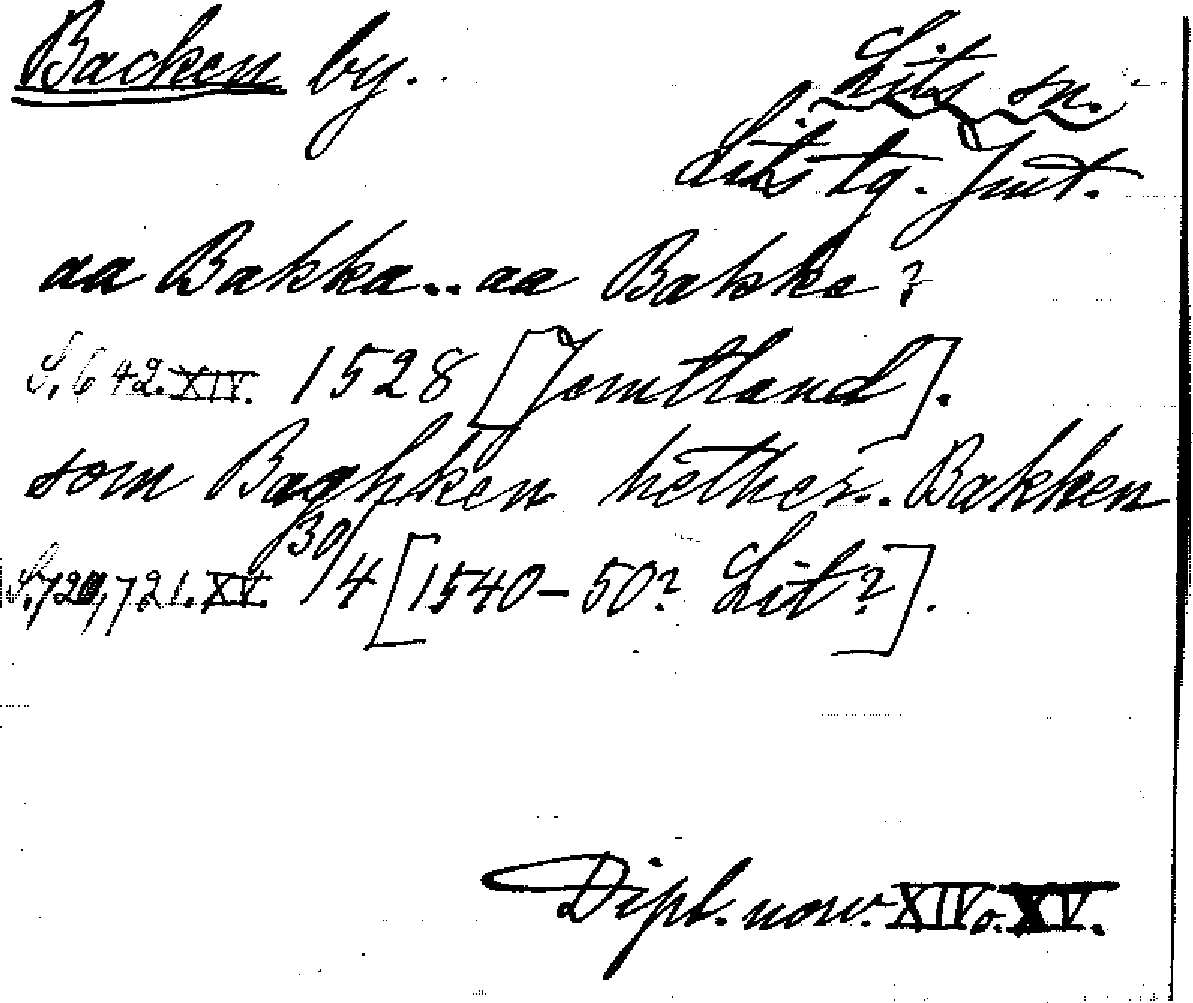 Backen by.
Lits sn.
Lits tg. Jmt.
aa Bakka.. aa Bakke?
S. 642. XIV. 1528 [Jemtland].
som Baghken hether.. Bakken
S. 720, 721. XV. 30/4 [1540–50? Lit?].
Dipl. norv. XIV o. XV.